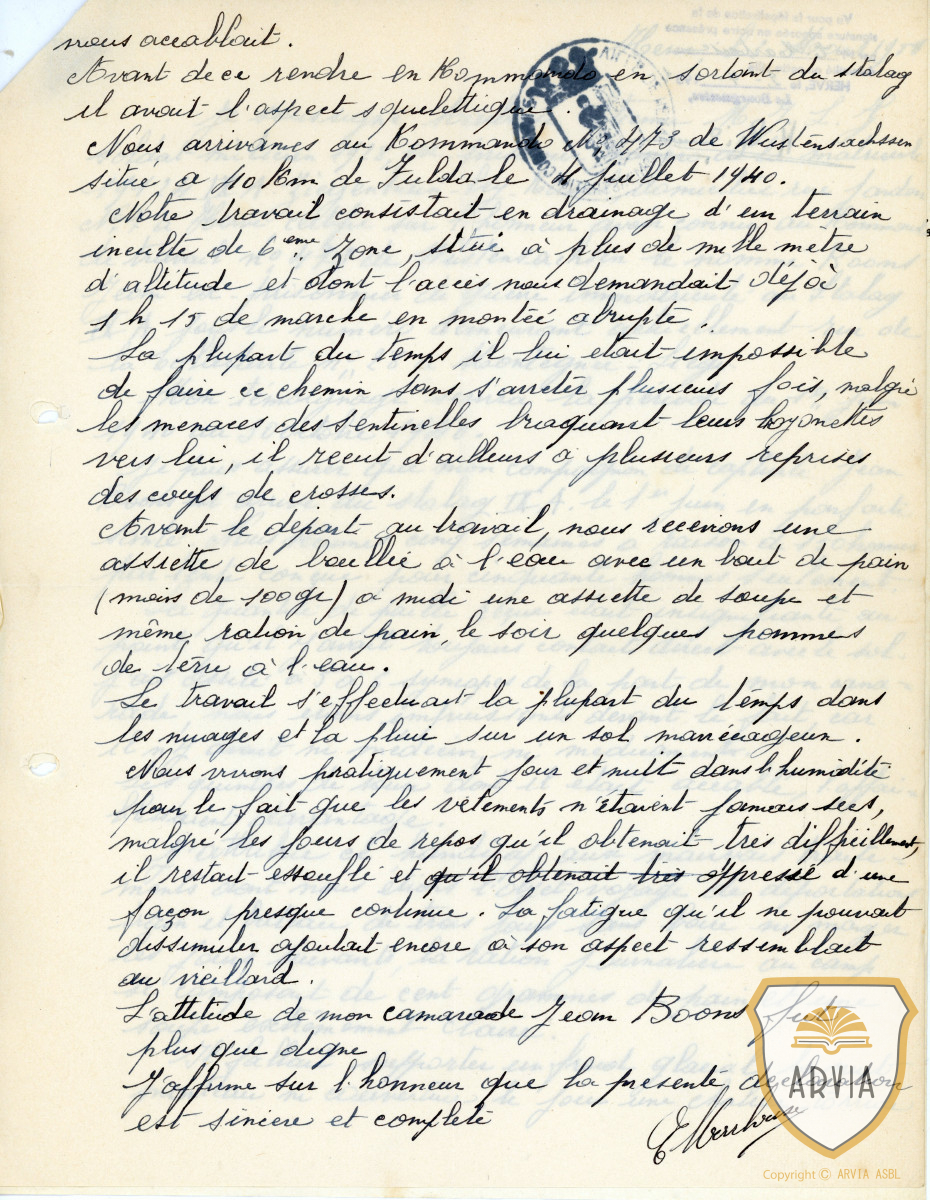 nous accablait.
Avant de ce rendre en Kommando en sortant du stalag
il avait l'aspect squelettique.
Nous arrivames au Kommando No 473 de Wustensachssen
situé a 40 Km de Fulda le 4 juillet 1940.
Notre travail consistait en drainage d'un terrain
inculte de 6eme zone, situé à plus de mille mètre
d'altitude et dont l'accès nous demandait déjà
1 h 15 de marche en montée abrupte.
La plupart du temps il lui était impossible
de faire ce chemin sans s'arreter plusieurs fois, malgré
les menaces des sentinelles braquant leurs bayonettes
vers lui, il recut d'ailleurs à plusieurs reprises
des coups de crosses.
Avant le départ au travail, nous recevions une
assiette de boullie à l'eau avec un bout de pain
(moins de 100gr) a midi une assiette de soupe et
même ration de pain, le soir quelques pommes
de terre à l'eau.
Le travail s'effectuait la plupart du temps dans
les nuages et la pluie sur un sol marécageux.
Nous vivons pratiquement jour et nuit dans l'humidité
pour le fait que les vêtements n'étaient jamais secs,
malgré les jours de repos qu'il obtenait très difficillement,
il restait essouflé et qu'il obtenait très oppressé d'une
façon presque continue. La fatigue qu'il ne pouvait
dissimuler ajoutait encore à son aspect ressemblait
au vieillard.
L'attitude de mon camarade Jean Boons fut
plus que digne
J'affirme sur l'honneur que la présente declaration
est sincère et complète
ARVIA
Copyright © ARVIA ASBL